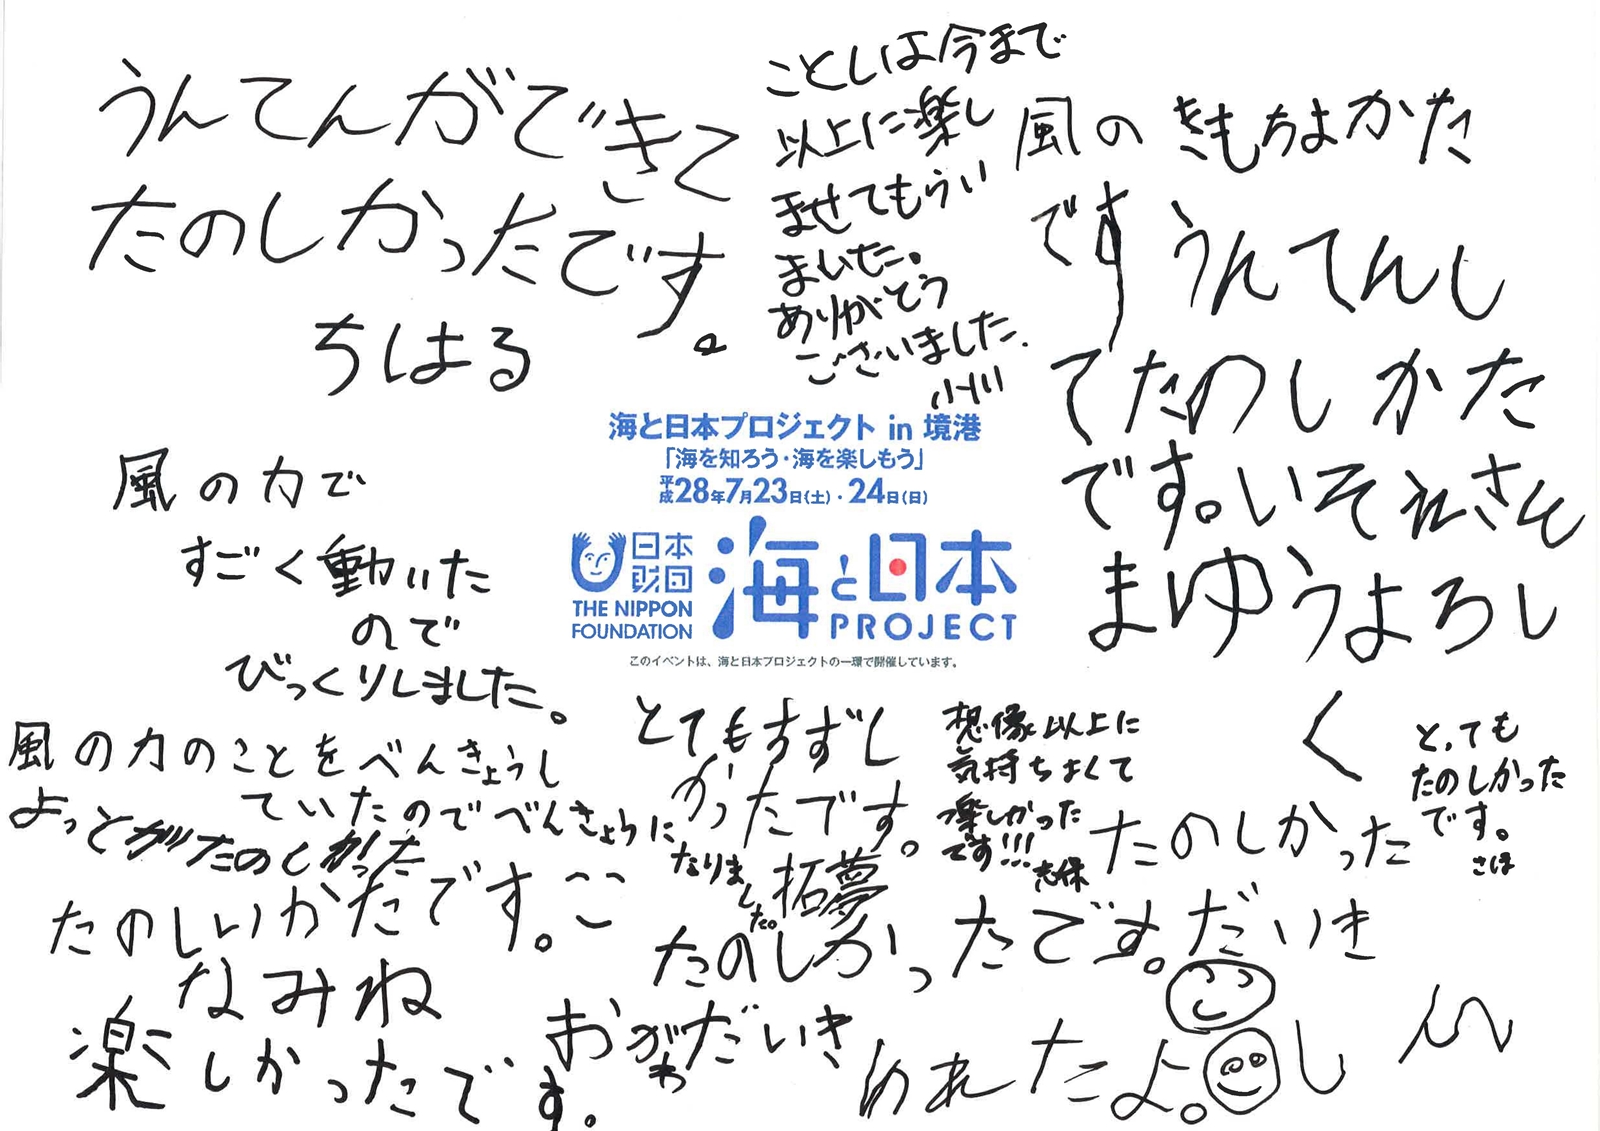 うんてんができて
たのしかったです。
ちはる
ことしは今まで
以上に楽し
ませてもらい
ました。
ありがとう
ございました.
小川
風の きもちよかた
です うんてんし
てたのしかた
です。いそれさん
まゆうよろし
く
海と日本プロジェクト in 境港
「海を知ろう・海を楽しもう」
平成28年7月23日(土)・24日(日)
日本
財団
THE NIPPON
FOUNDATION
海と日本
PROJECT
このイベントは、海と日本プロジェクトの一環で開催しています。
風の力で
すごく動いた
ので
びっくりしました。
風の力のことをべんきょうし
ていたのでべんきょうに
なりまし
た。
よっとがたのしかった
たのしいかたです。
なみね
楽しかったです。
とてもすずし
かったです。
拓夢
想像以上に
気持ちよくて
楽しかった
です!!!
志保
とっても
たのしかった
です。
さほ
たのしかった
たのしかったです。だいき
おがわだいき
われたよ。し
ん